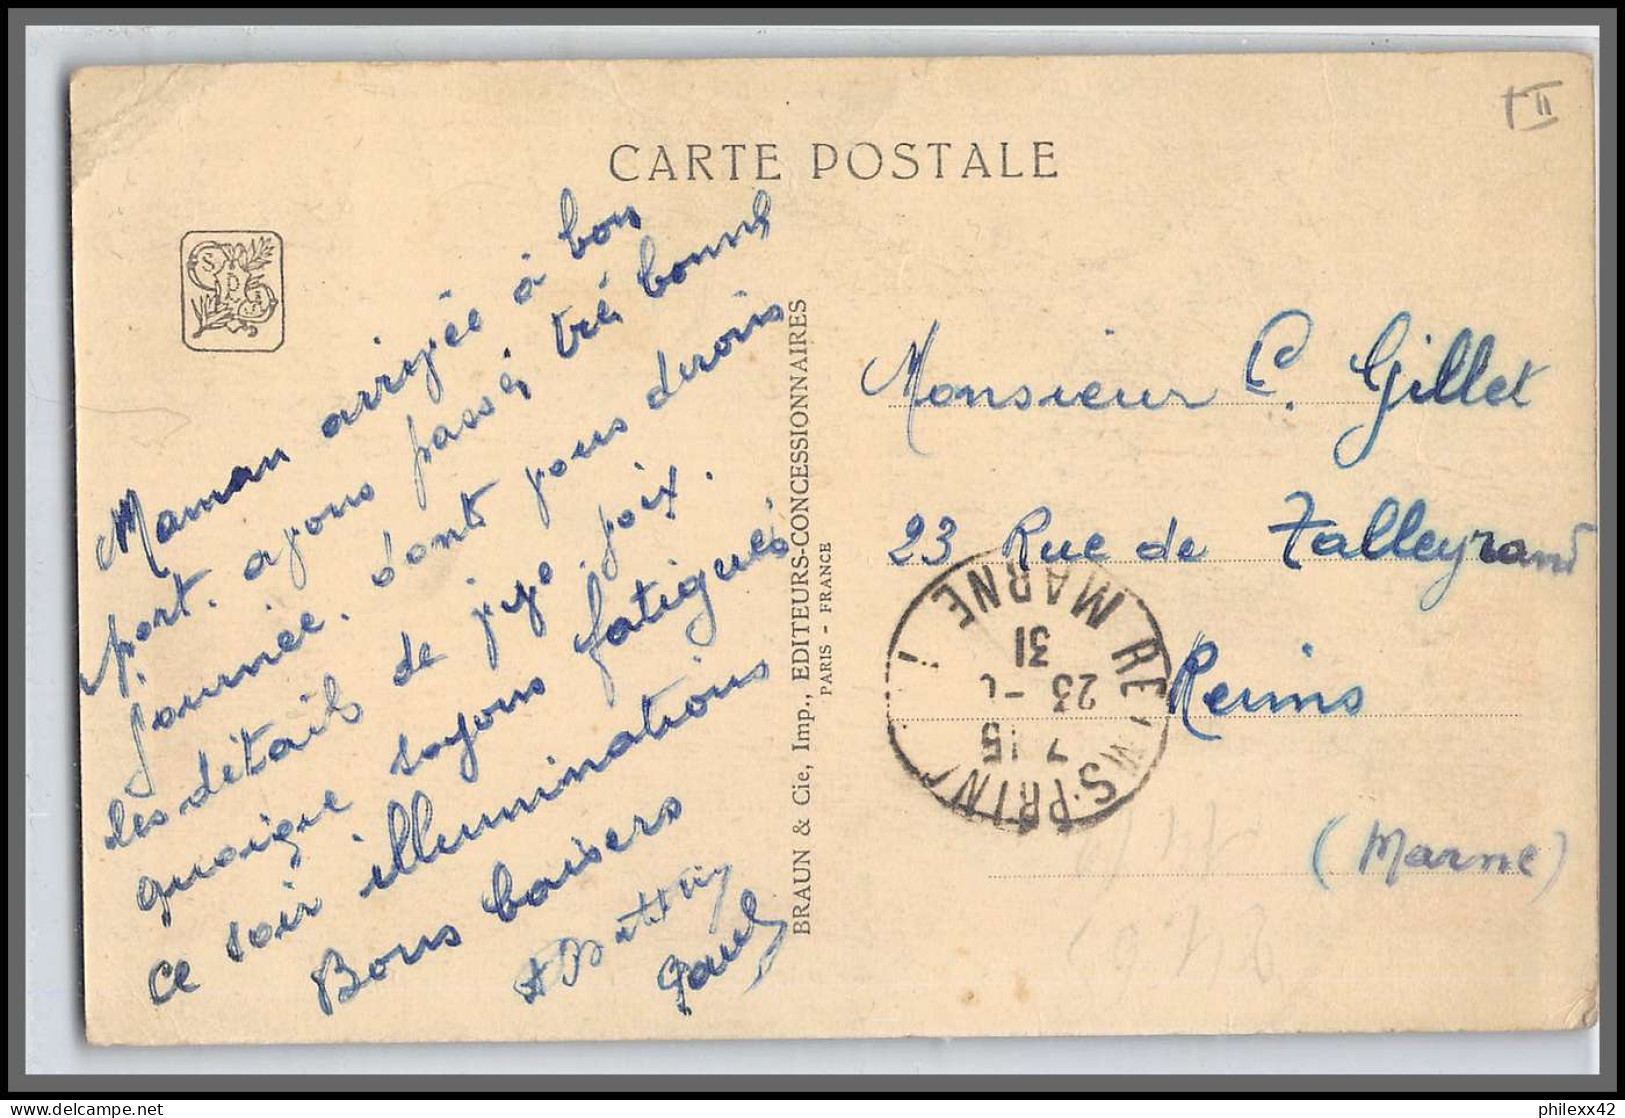 CARTE POSTALE
Maman arrivée à bon
port. avons passés trés bonne
journée. dont vous devoir
les détails de vive joix.
quoique soyons fatigués
ce soir illuminations
Bons baisers
BRAUN & Cie, Imp., EDITEURS-CONCESSIONNAIRES
PARIS - FRANCE
Monsieur C. Gillet
23 Rue de Talleyrand
Reims
(Marne)
REIMS-PRIN
7 15
23 -
31
MARNE
II
philexx42